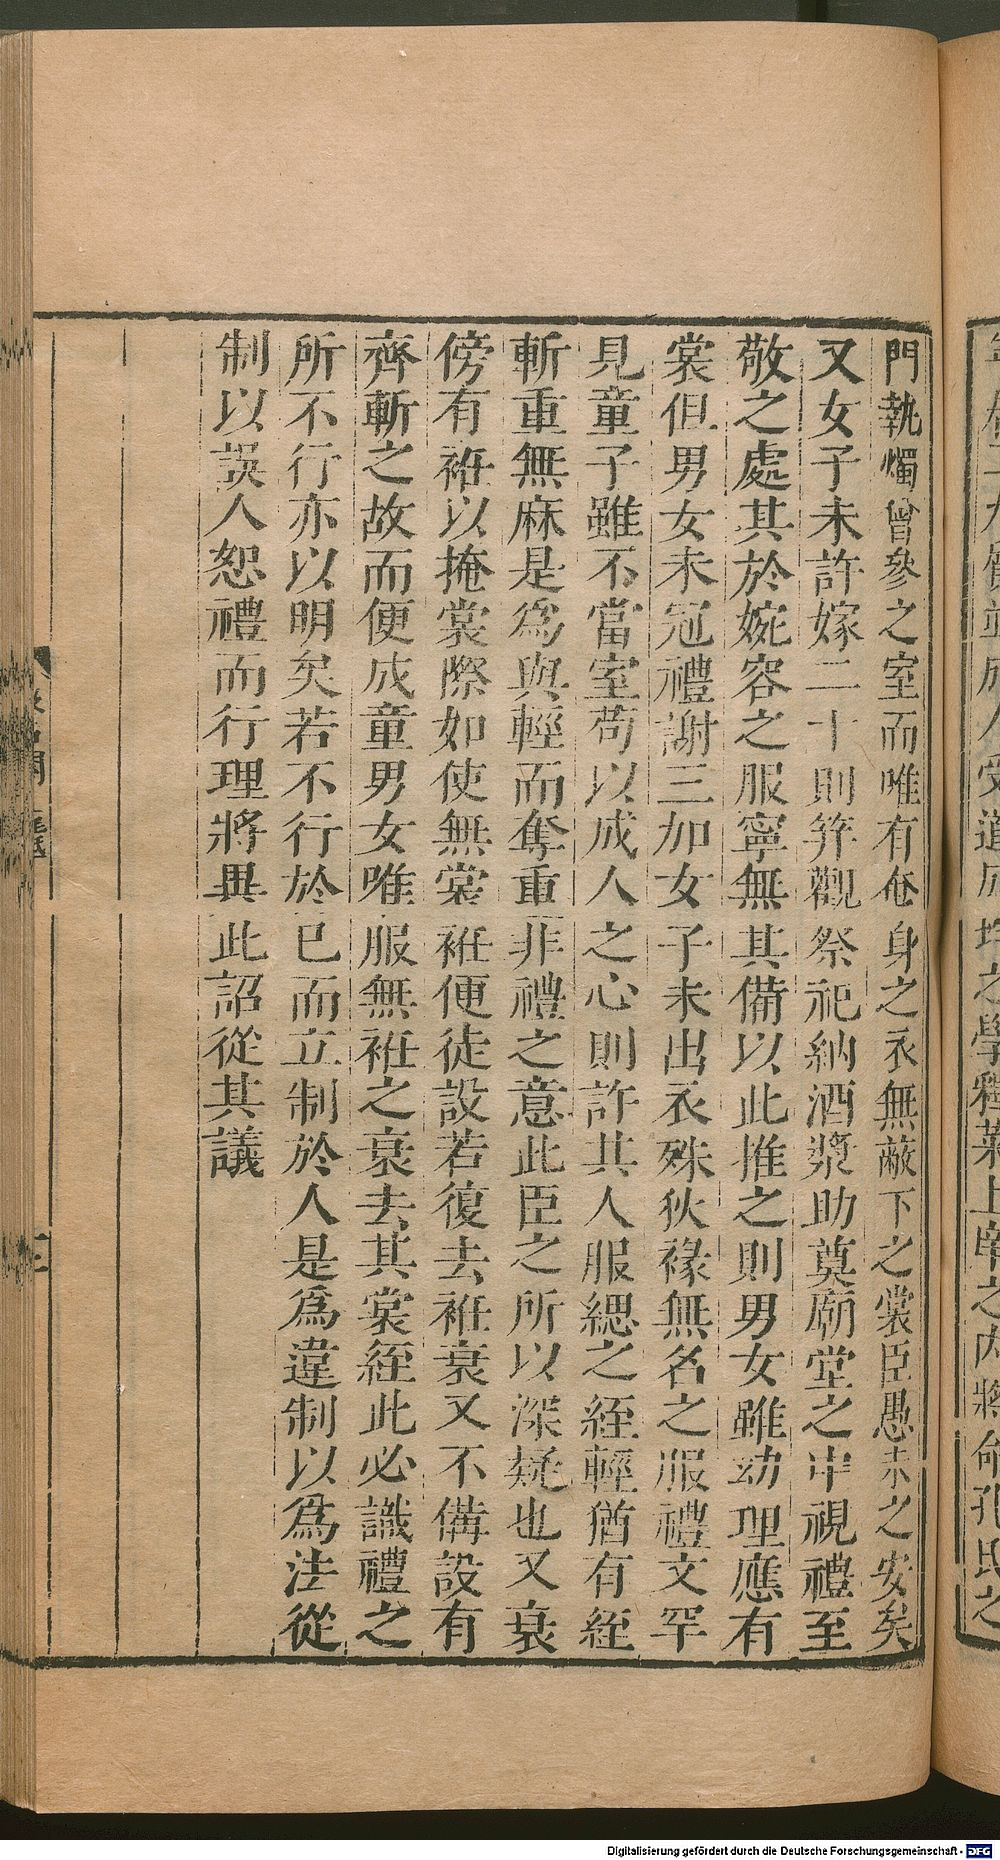 門執燭曾參之室而唯有奄身之衣無蔽下之裳臣愚未之安矣
又女子未許嫁二十則笄觀祭祀納酒漿助奠廟堂之中視禮至
敬之處其於婉容之服寧無其備以此推之則男女雖幼理應有
裳但男女未冠禮謝三加女子未出衣殊狄褖無名之服禮文罕
見童子雖不當室苟以成人之心則許其人服緦之絰輕猶有絰
斬重無麻是為與輕而奪重非禮之意此臣之所以深疑也又衰
傍有袵以掩裳際如使無裳袵便徒設若復去袵衰又不備設有
齊斬之故而便成童男女唯服無袵之衰去其裳絰此必識禮之
所不行亦以明矣若不行於已而立制於人是為違制以為法從
制以誤人恕禮而行理將異此詔從其議
Digitalisierung gefördert durch die Deutsche Forschungsgemeinschaft - DFG